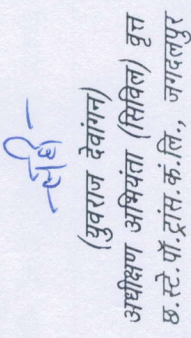 -सही-
(युवराज देवांगन)
अधीक्षण अभियंता (सिविल) वृत्त
छ.स्टे.पॉ.ट्रांस.कं.लि., जगदलपुर